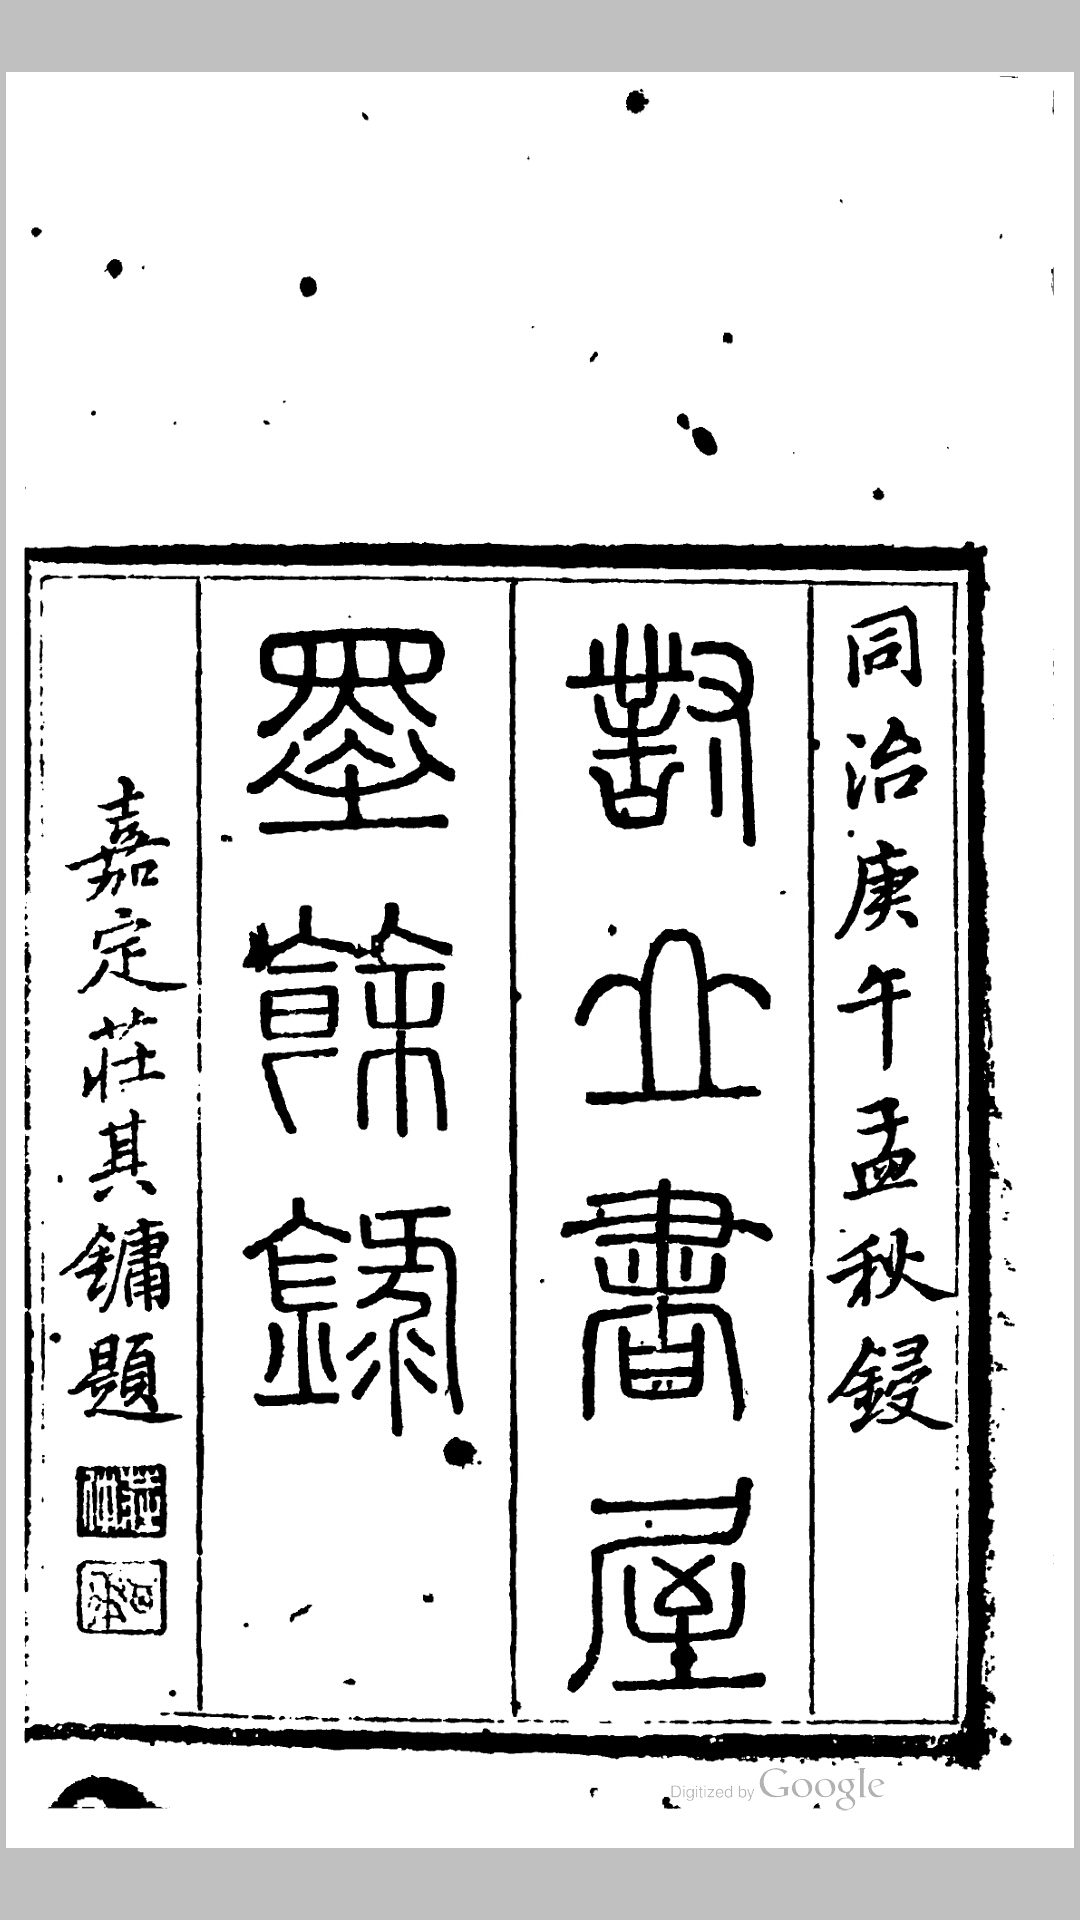 同治庚午孟秋鋟
對山書屋
墨餘錄
嘉定莊其鏞題
Digitized by Google